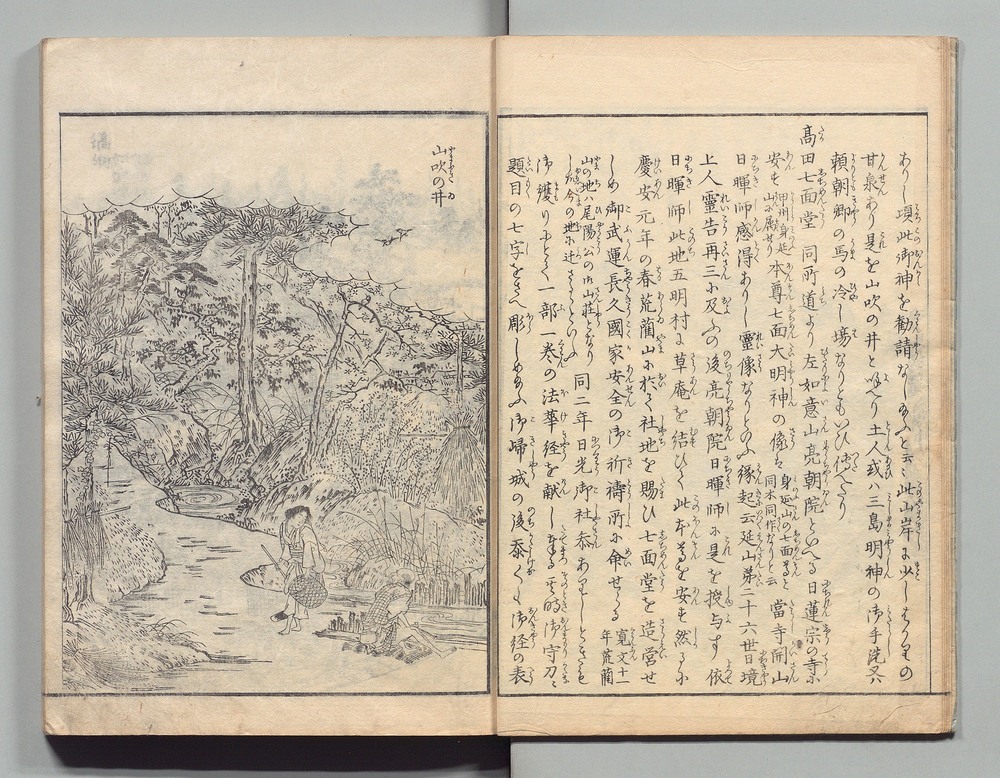 ありし頃此御神を勧請なし給ふと云々此山岸に少しきの
甘泉あり是を山吹の井と唱へり土人或ハ三島明神の御手洗又ハ
頼朝卿の馬の冷し場なりともいひ傳へたり
高田七面堂 同所道より左如意山亮朝院といへる日蓮宗の寺に
安も 甲州身延山に属せり 本尊七面大明神の像は 身延山の七面尊と同木同作なりと云 當寺開山
日暉師感得ありし靈像なりとの縁起云延山第二十六世日境
上人靈告再三に及ふの後亮朝院日暉師に是を授与す依
日暉師此地五明村に草庵を結ひて此本尊を安も然るに
慶安元年の春荒藺山に於て社地を賜ひ七面堂を造営せ
しめ御武運長久國家安全の御祈禱所に命せらる 寛文十一年荒藺
山の地ハ尾陽公の御山荘となり今の地に遷さるゝといふ 同二年日光御社参ありしときも
御護りとて一部一巻の法華経を献し奉る其時御守刀に
題目の七字をさへ彫しめ給ふ御帰城の後黍く御経の表
山吹の井